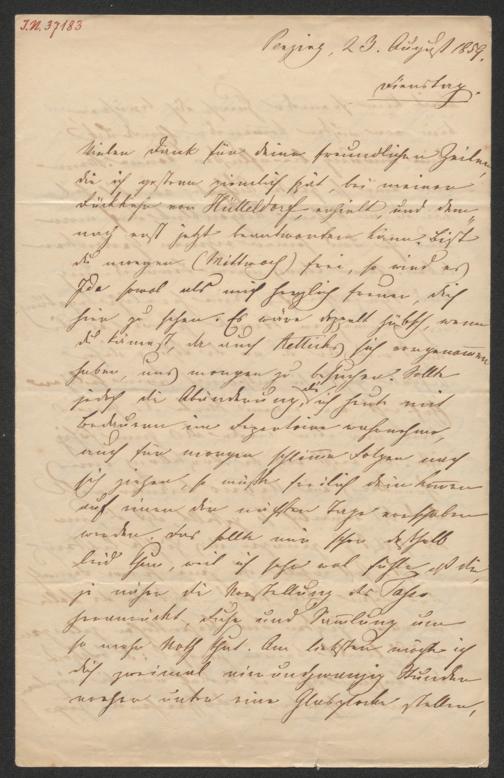 I.N. 37183
Penzing, 23. August 1859.
Dienstag.
Vielen Dank für deine freundlichen Zeilen,
die ich gestern ziemlich spät, bei meiner
Rückkehr von Hütteldorf, erhielt, und dem-
nach erst jetzt beantworten kann. Bist
du morgen (Mittwoch) frei, so wird es
Ida sowol als mich herzlich freuen, dich
hier zu sehen. Es wäre doppelt hübsch, wenn
du kämest, da auch Rettichs sich vorgenommen
haben, uns morgen zu besuchen. Sollte
jedoch die Abänderung, die ich heute mit
Bedauern im Repertoire wahrnehme,
auch für morgen schlimme Folgen nach
sich ziehen, so müßte freilich dein Kommen
auf einen der nächsten Tage verschoben
werden. Das sollte mir schon deßhalb
leid thun, weil ich sehr wol fühle, daß dir,
je näher die Vorstellung des Tasso
heranrückt, Ruhe und Sammlung um
so mehr Noth thut. Am liebsten möchte ich
dich zweimal vierundzwanzig Stunden
vorher unter eine Glasglocke stellen,